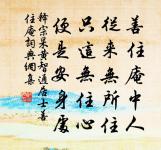 善住庵中人
從來無所住
只這無住心
便是安身處
釋宗杲黃智通居士善
住庵詞典網集